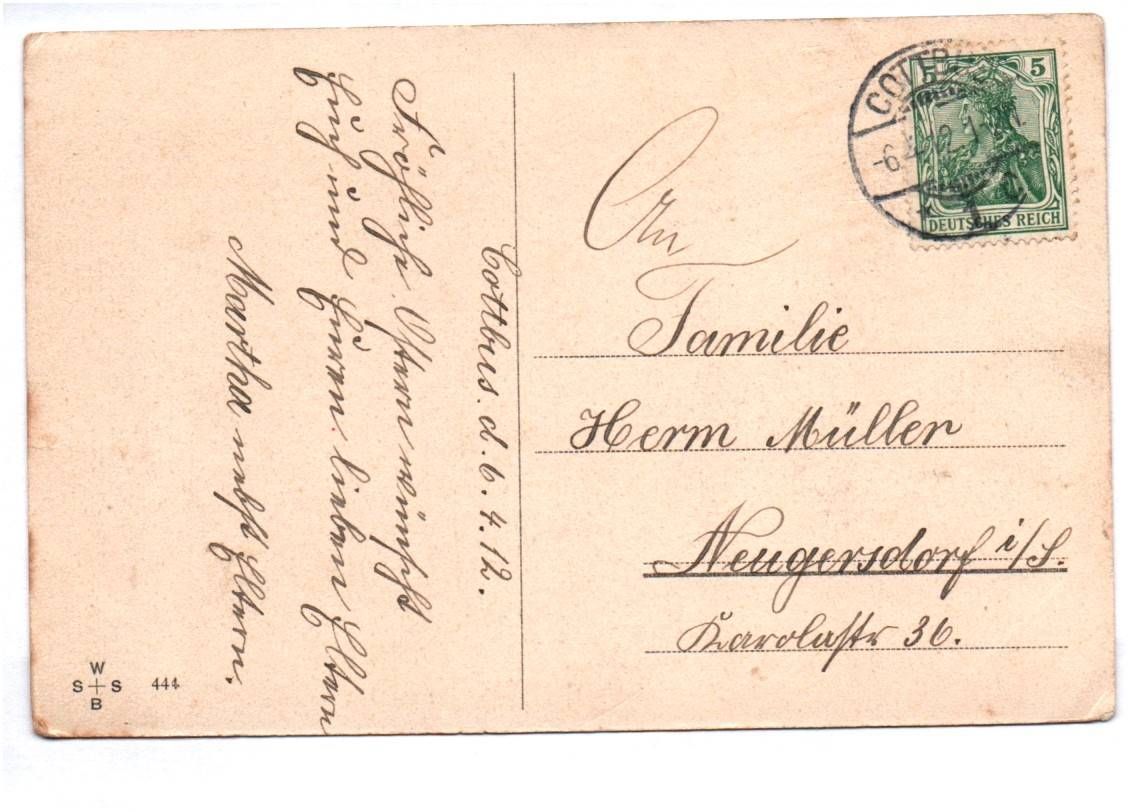 Cottbus. d. 6. 4. 12.
Fröhliche Ostern wünscht
Euch und Euren lieben Eltern
Martha nebst Eltern.
An
Familie
Herm Müller
Neugersdorf i/S.
Karolastr 36.
5 5
DEUTSCHES REICH
COTTBUS
W
S S
B
444